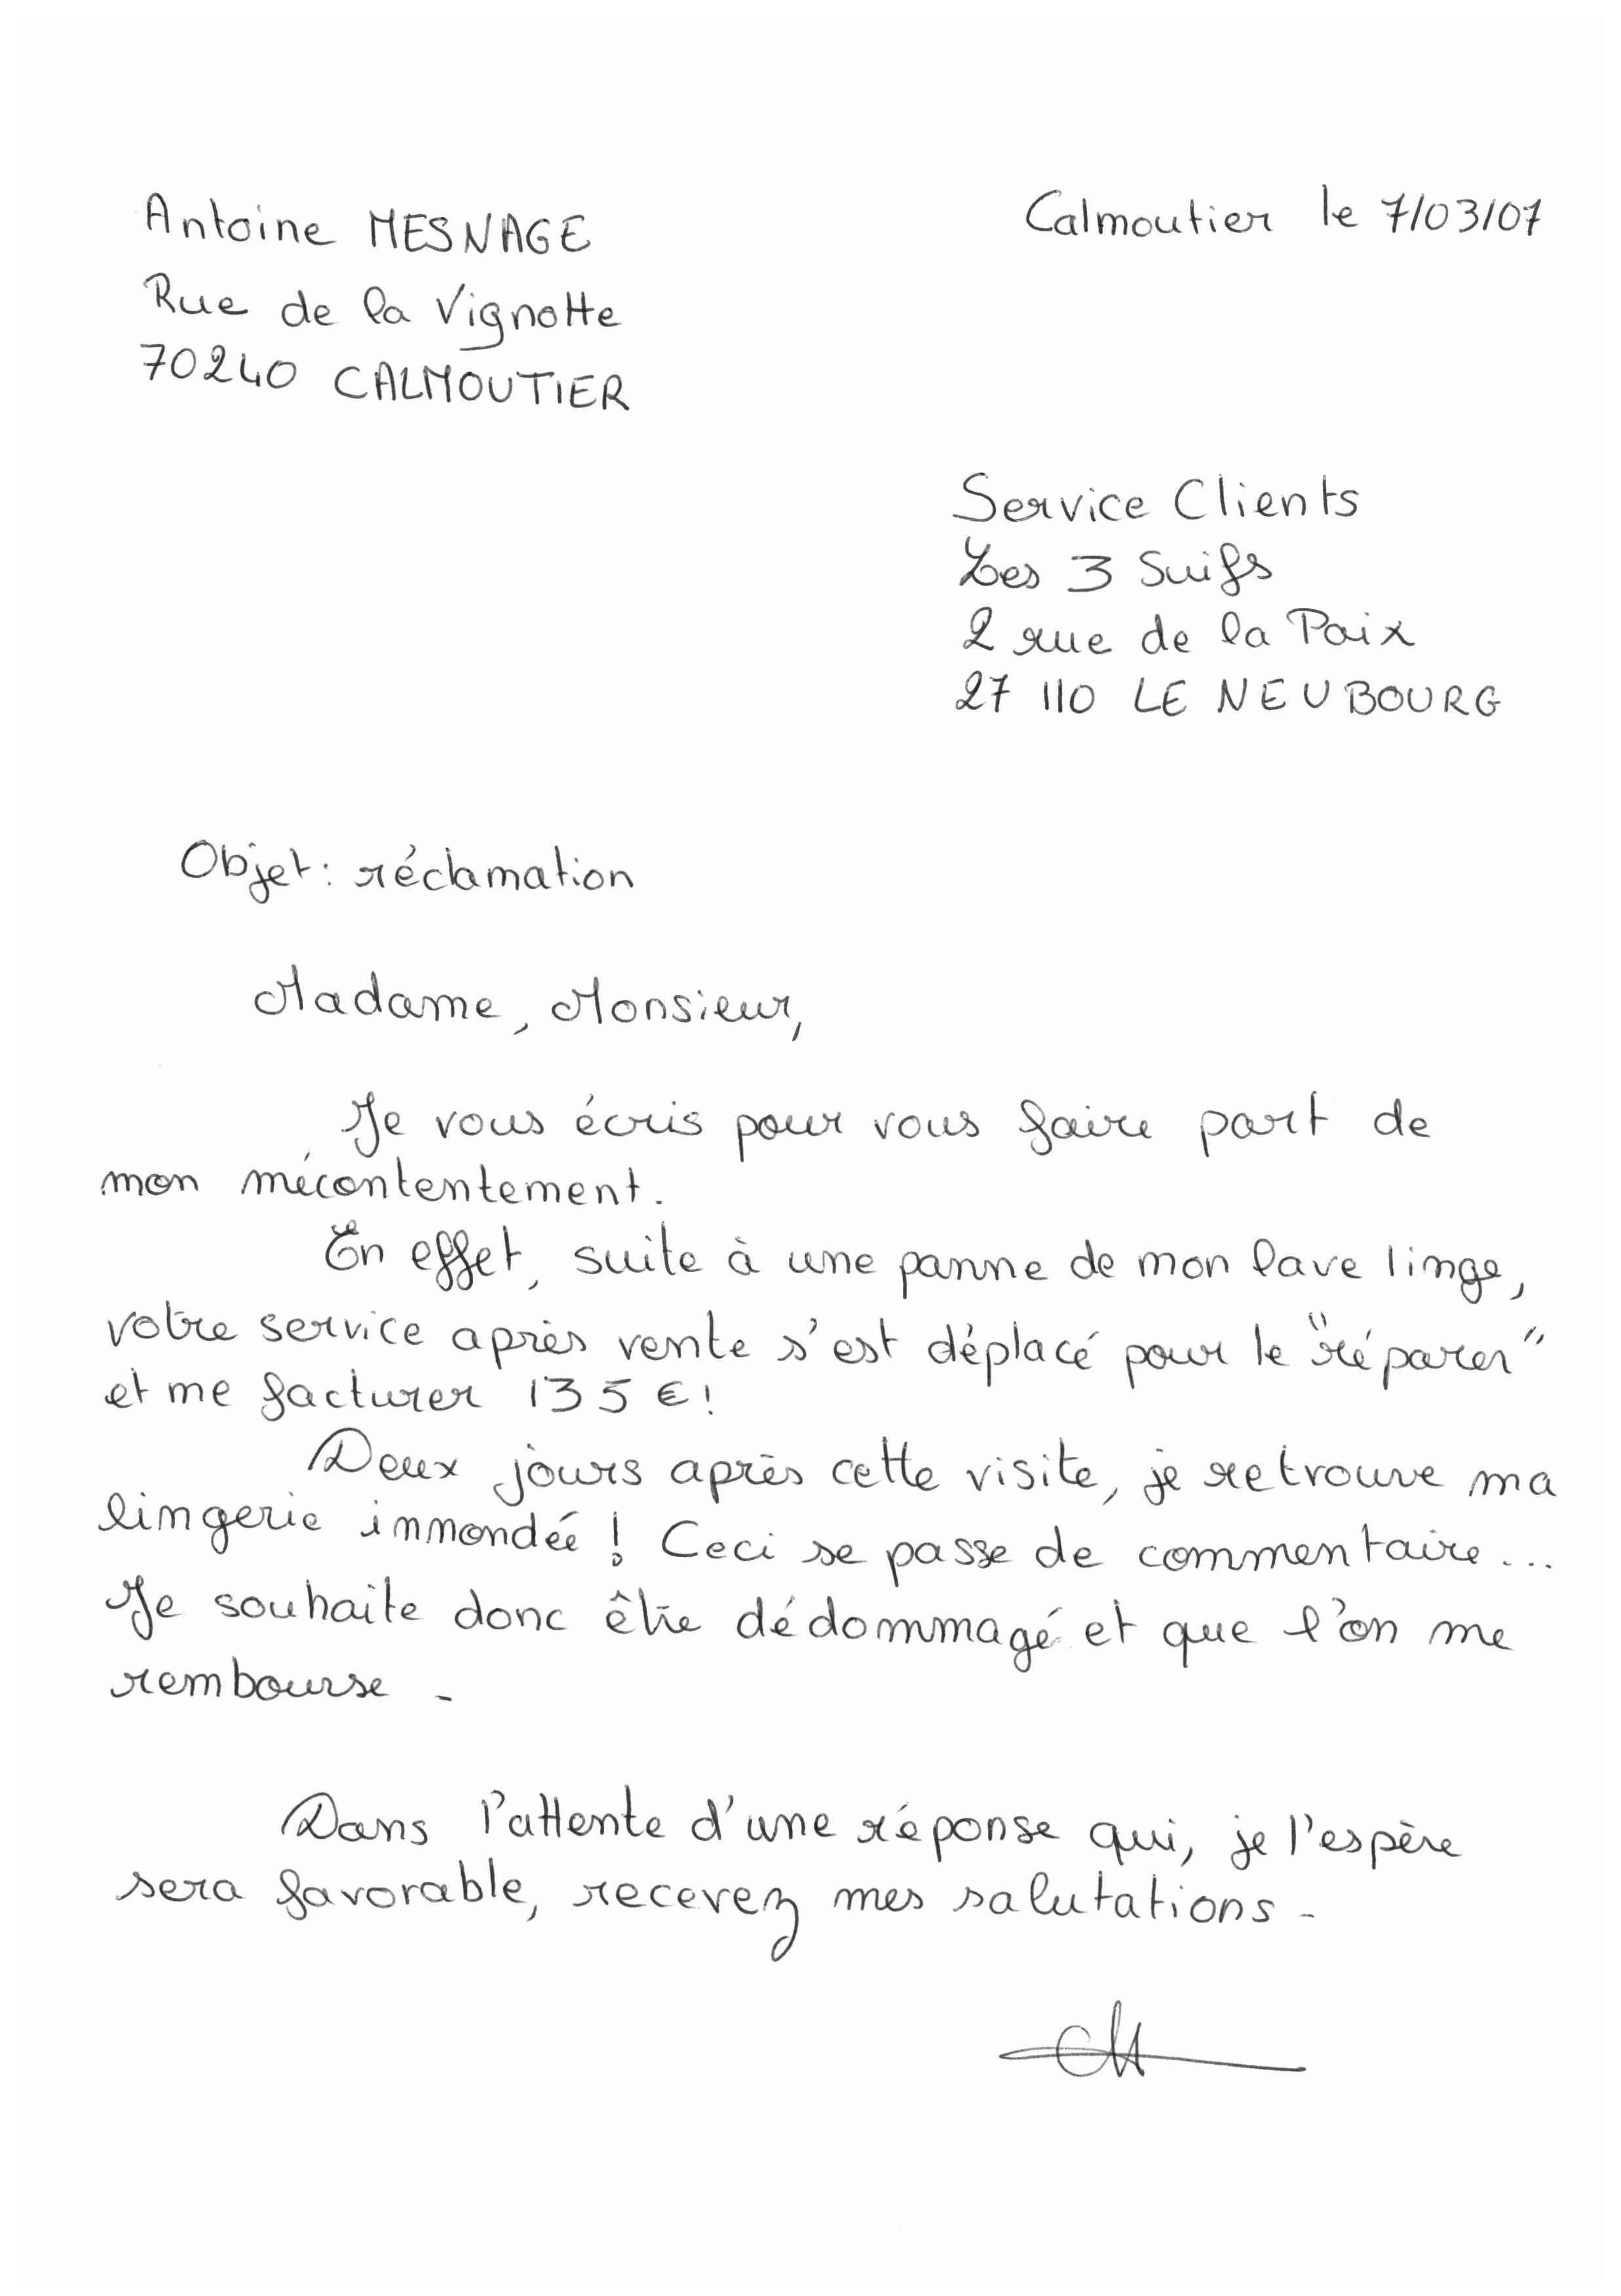 Antoine MESNAGE
Calmoutier le 7/03/07
Rue de la Vignotte
70240 CALMOUTIER
Service Clients
Les 3 Suifs
2 rue de la Paix
27 110 LE NEUBOURG
Objet : réclamation
Madame, Monsieur,
Je vous écris pour vous faire part de
mon mécontentement.
En effet, suite à une panne de mon lave linge,
votre service après vente s'est déplacé pour le "réparer"
et me facturer 135 € !
Deux jours après cette visite, je retrouve ma
lingerie inmondée ! Ceci se passe de commentaire...
Je souhaite donc être dédommagé et que l'on me
rembourse -
Dans l'attente d'une réponse qui, je l'espère
sera favorable, recevez mes salutations -